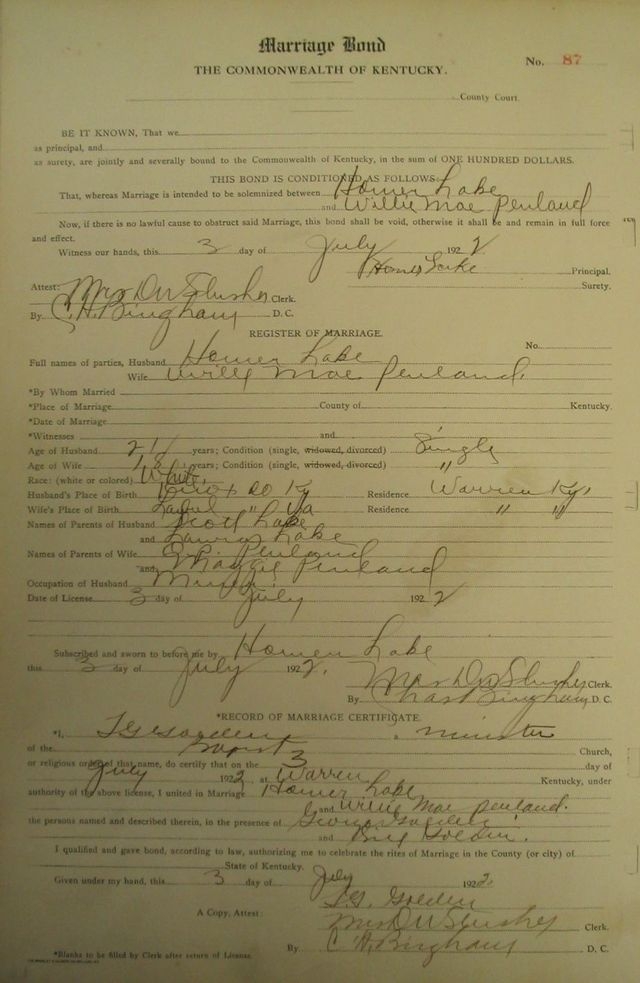 Marriage Bond
No. 87
THE COMMONWEALTH OF KENTUCKY.
County Court.
BE IT KNOWN, That we
as principal, and
as surety, are jointly and severally bound to the Commonwealth of Kentucky, in the sum of ONE HUNDRED DOLLARS.
THIS BOND IS CONDITIONED AS FOLLOWS:
That, whereas Marriage is intended to be solemnized between Homer Lake
and Willie Mae Penland
Now, if there is no lawful cause to obstruct said Marriage, this bond shall be void, otherwise it shall be and remain in full force
and effect.
Witness our hands, this 3 day of July 1922
Homer Lake Principal.
Surety.
Attest: Mrs D W Slusher Clerk.
By C. H. Bingham D. C.
REGISTER OF MARRIAGE.
No.
Full names of parties, Husband Homer Lake
Wife Willie Mae Penland
*By Whom Married
*Place of Marriage County of Kentucky.
*Date of Marriage
*Witnesses and
Age of Husband 21 years; Condition (single, widowed, divorced) Single
Age of Wife 18 years; Condition (single, widowed, divorced) "
Race: (white or colored) White
Husband's Place of Birth Knox Co Ky Residence Warren Ky
Wife's Place of Birth " Residence " "
Names of Parents of Husband Scott Lake
and Laura Lake
Names of Parents of Wife Penland
and Maggie Penland
Occupation of Husband
Date of License 3 day of July 1922
Subscribed and sworn to before me by Homer Lake
this 3 day of July 1922.
Mrs D W Slusher Clerk.
By Bingham D. C.
*RECORD OF MARRIAGE CERTIFICATE.
*I, minister
of the Bapist Church,
or religious order of that name, do certify that on the 3 day of
July 1922, at Warren Kentucky, under
authority of the above license, I united in Marriage Homer Lake
and Willie Mae Penland.
the persons named and described therein, in the presence of
and Golden.
I qualified and gave bond, according to law, authorizing me to celebrate the rites of Marriage in the County (or city) of
State of Kentucky.
Given under my hand, this 3 day of July 1922.
Golden
A Copy, Attest: Mrs D W Slusher Clerk.
By C H Bingham D. C.
*Blanks to be filled by Clerk after return of License.